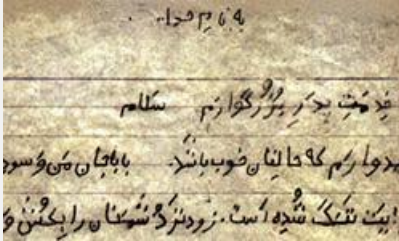 به نام خدا
خدمتِ پدرِ بزرگوارم سلام
یدوارم که حالتان خوب باشد. باباجان من و سود
تنگ شده است. زودتر دشمنان را بکشن و